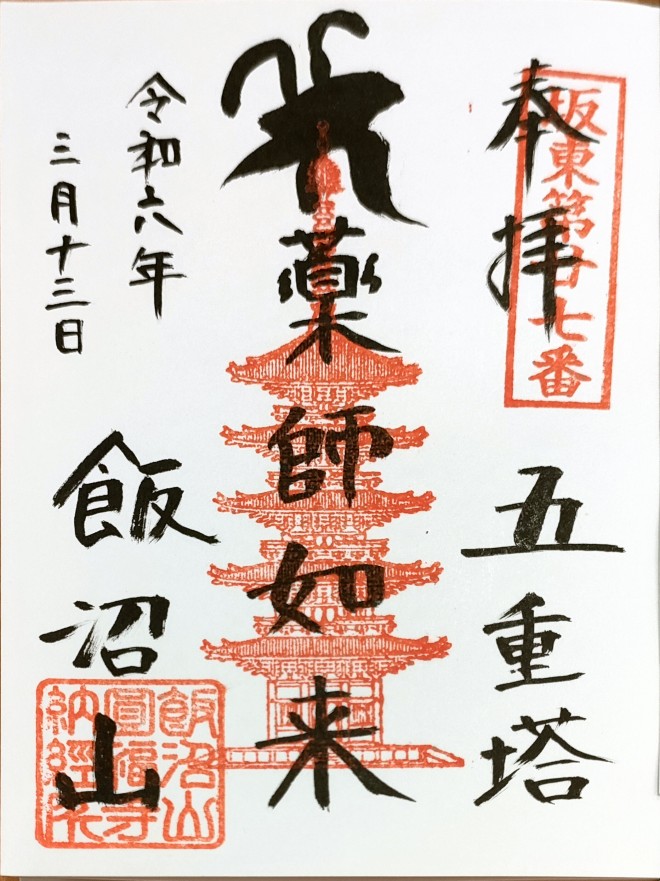 奉拝
坂東第廿七番
五重塔
薬師如来
令和六年
三月十三日
飯沼山
飯沼山
圓福寺
納経所